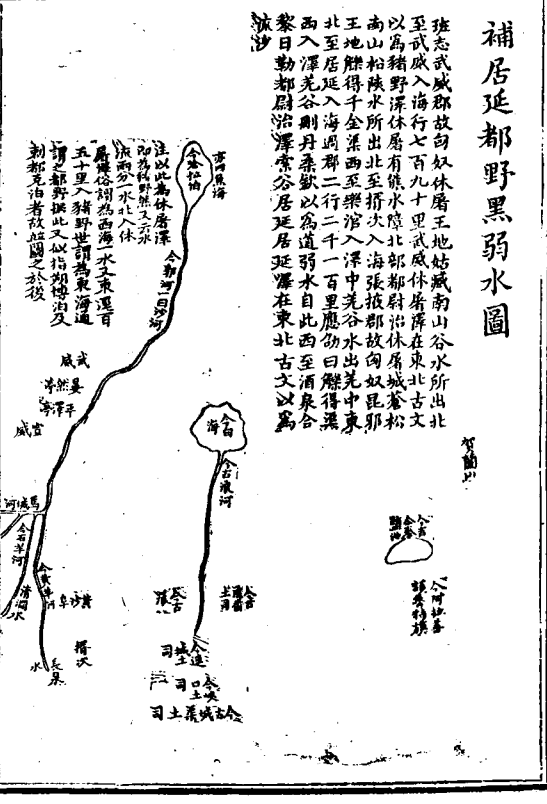 補居延都野黑弱水圖
班志武威郡故匈奴休屠王地姑臧南山谷水所出北
至武威入海行七百九十里武威休屠澤在東北古文
以為豬野澤休屠有熊水障北部都尉治休屠城蒼松
南山松陝水所出北至揟次入海張掖郡故匈奴昆邪
王地觻得千金渠西至樂涫入澤中羌谷水出羌中東
北至居延入海過郡二行二千一百里應劭曰觻得渠
西入澤羌谷刪丹桑欽以為道弱水自此西至酒泉合
黎日勒都尉治澤索谷居延居延澤在東北古文以為
流沙
賀蘭山
今哈拉泊
亦曰魚海
注以此為休屠澤
即為豬野然又云水
流兩分一水北入休
屠澤俗謂為西海一水又東逕百
五十里入豬野世謂為東海通
謂之都野據此又似指
剌都克泊者故並圖之於後
今郭河一曰沙河
武威
晏然亭
平澤亭
宣威
馬城河
今石羊河
清澗水
今黃羊河
黃沙阜
揟次
長泉水
今白海
今古浪河
今古
鹽池
今阿拉善
額魯特旗
司
今古城渠土司